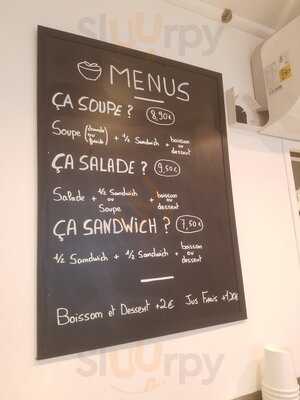 Sluurpy
MENUS
ÇA SOUPE ? 8,90€
Soupe (chaude ou froide) + 1/2 Sandwich + boisson ou dessert
ÇA SALADE ? 9,50€
Salade + 1/2 Sandwich ou Soupe + boisson ou dessert
ÇA SANDWiCH ? 7,50€
1/2 Sandwich + 1/2 Sandwich + boisson ou dessert
Boisson et Dessert +2€ Jus Frais +1,20€
Sluurpy